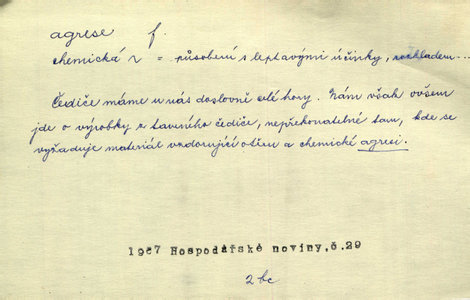 agrese f.
chemická ~ = působení s leptavými účinky, rozkladem...
Čediče máme u nás doslovně celé hory. Nám však ovšem
jde o výrobky z taveného čediče, nepřekonatelné tam, kde se
vyžaduje materiál vzdorující otěru a chemické agresi.
1957 Hospodářské noviny, č.29
2 bc